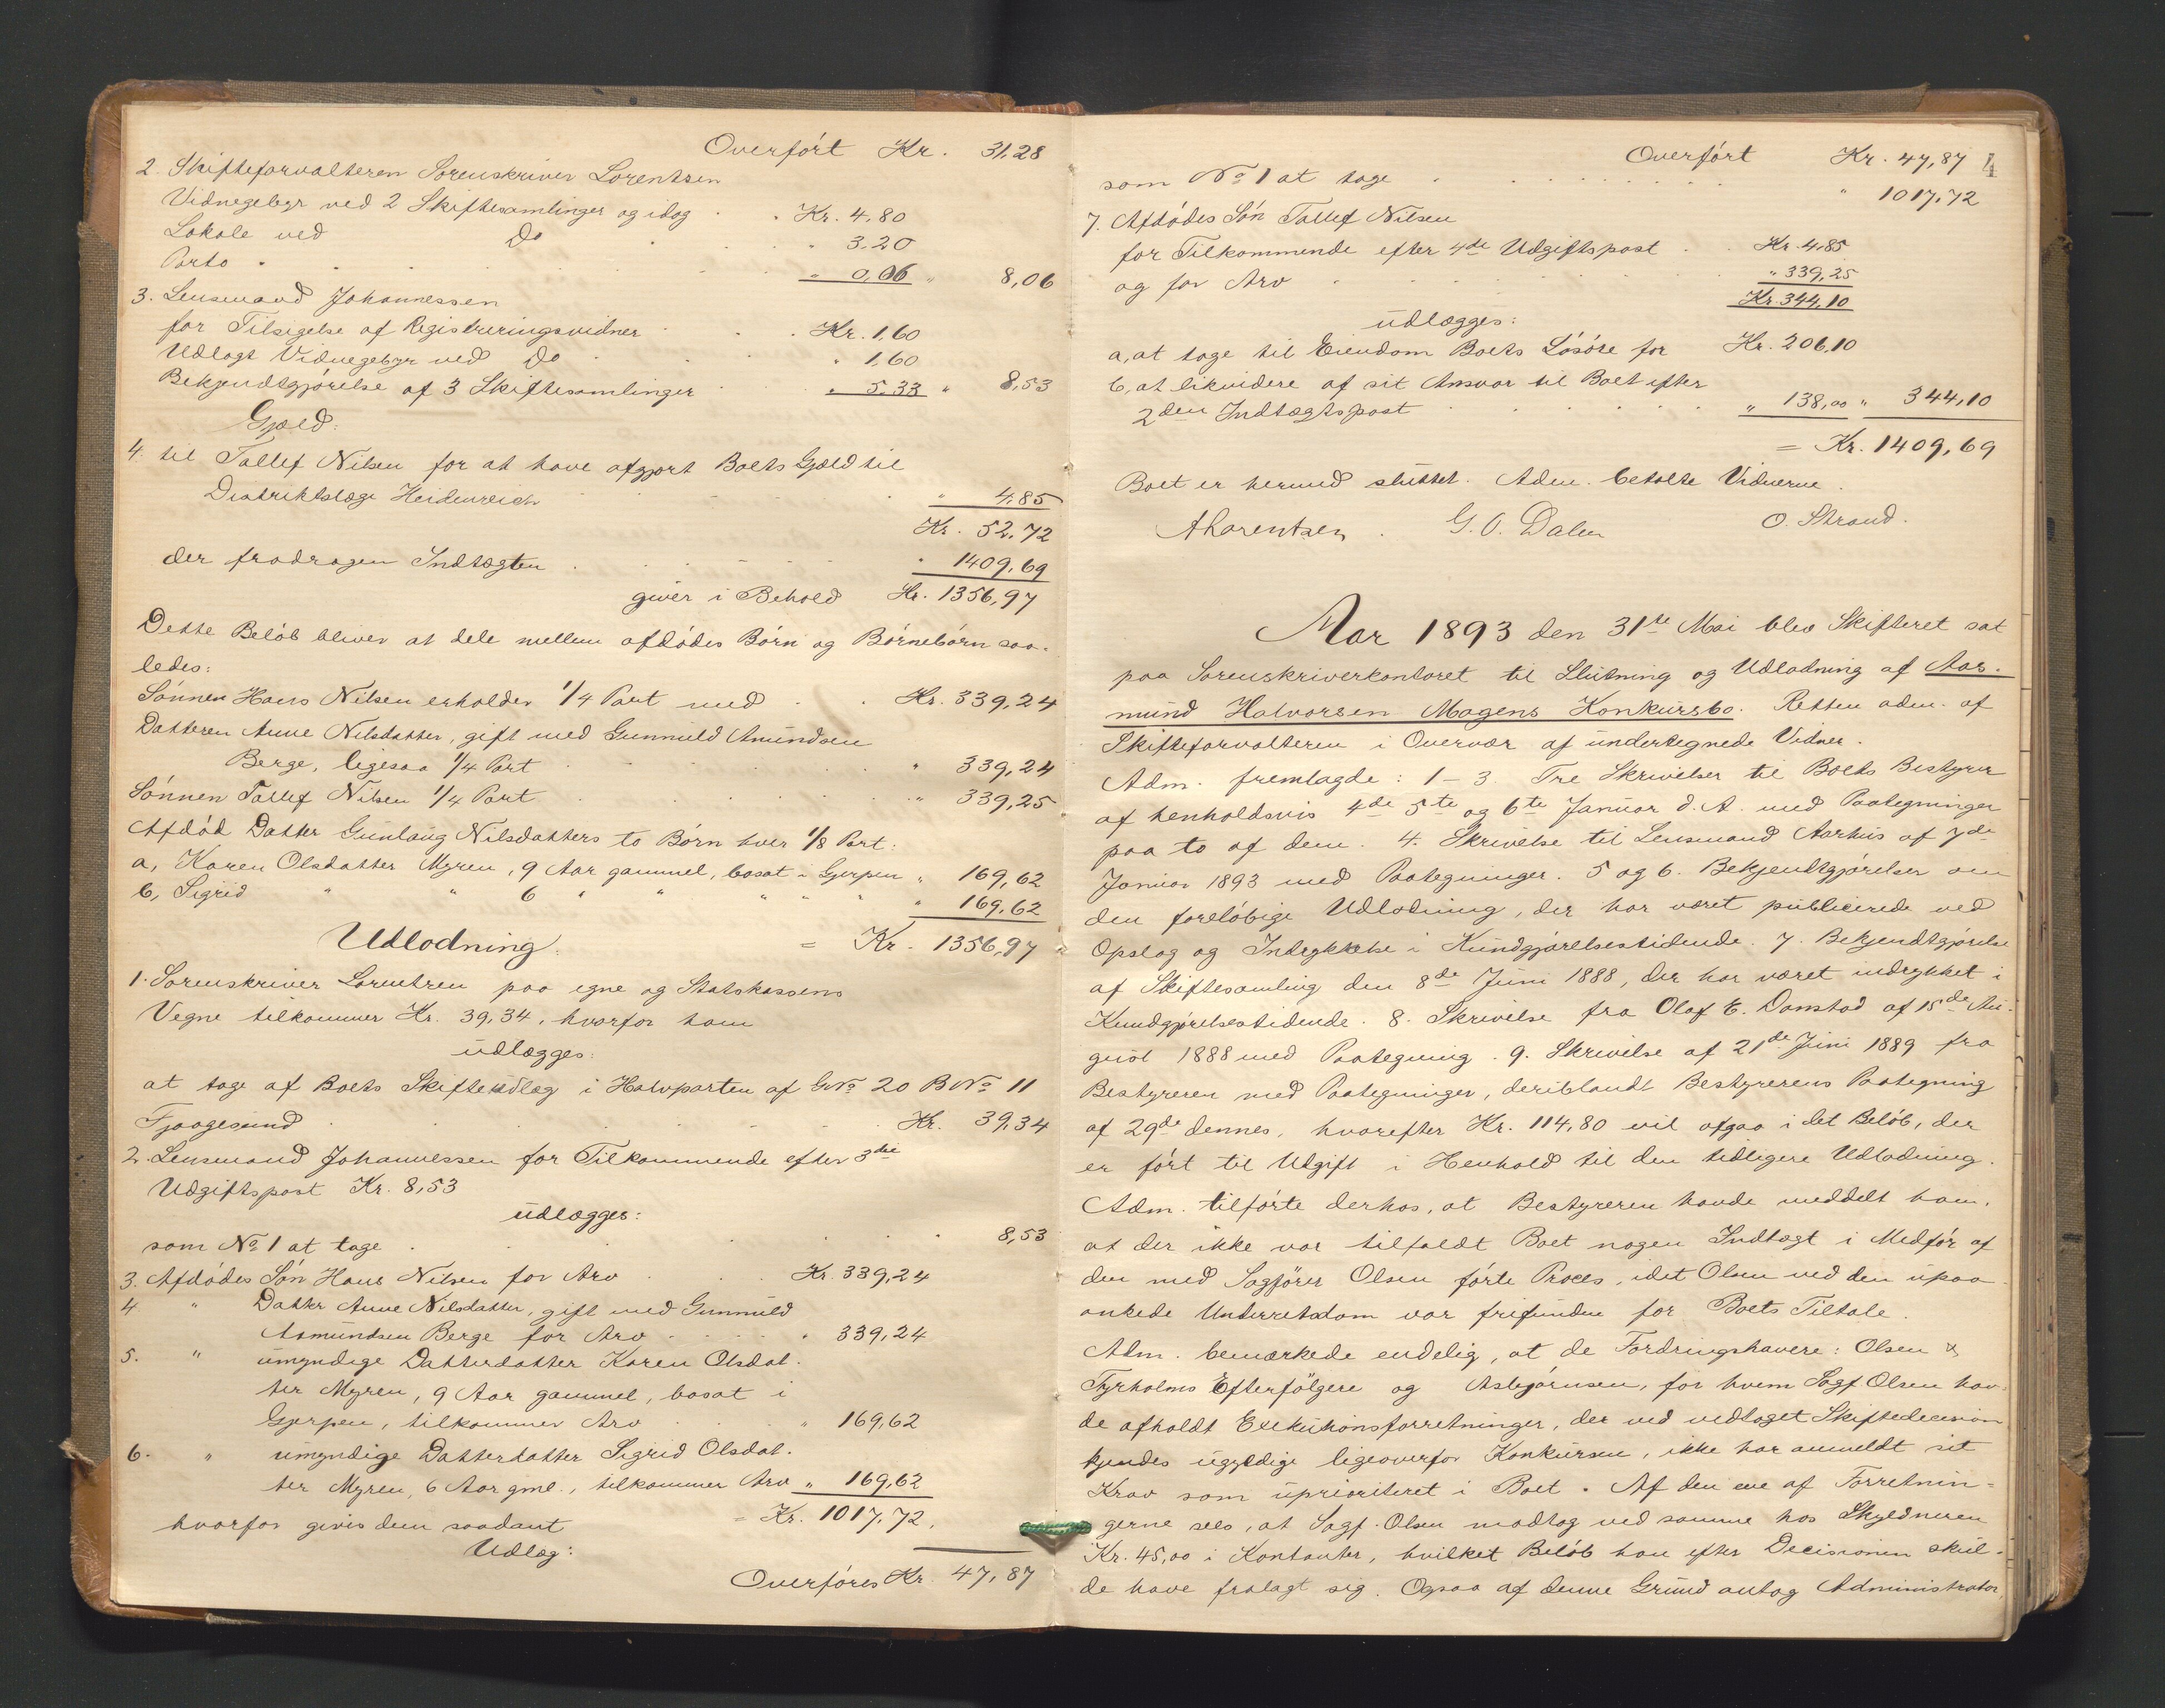 Overført Kr. 31,28
2. Skifteforvalteren Sorenskriver Lorentzen
Vidnegebyr ved 2 Skiftesamlinger og idag . . Kr. 4,80
Lokale ved Do . . . " 3,20
Porto . . . " 0,06 " 8,06
3. Lensmand Johannessen
for Tilsigelse af Registreringsvidner . . . Kr. 1,60
Udlagt Vidnegebyr ved Do . . . " 1,60
Bekjendtgjørelse af 3 Skiftesamlinger . . . " 5,33 " 8,53
Gjæld:
4. til Tallef Nilsen for at have afgjort Boets Gjæld til
Distriktslæge Heidenreich . . . " 4,85
Kr. 52,72
der fradragen Indtægten . . . " 1409,69
giver i Behold Kr. 1356,97
Dette Beløb bliver at dele mellem afdødes Børn og Børnebørn saa-
ledes:
Sønnen Hans Nilsen erholder 1/4 Part med . . Kr. 339,24
Datteren Anne Nilsdatter, gift med Gunnuld Amundsen
Berge, ligesaa 1/4 Part . . . " 339,24
Sønnen Tallef Nilsen 1/4 Part . . . " 339,25
Afdød Datter Gunlaug Nilsdatters to Børn hver 1/8 Part:
a, Karen Olsdatter Myren, 9 Aar gammel, bosat i Gjerpen " 169,62
b, Sigrid " " 6 " " " " " " 169,62
Udlodning. = Kr. 1356,97
1. Sorenskriver Lorentzen paa egne og Statskassens
Vegne tilkommer Kr. 39,34, hvorfor ham
udlægges:
at tage af Boets Skifteudlæg i Halvparten af GNo 20 BNo 11
Fjaagesund . . . Kr. 39,34
2. Lensmand Johannessen for Tilkommende efter 3die
Udgiftspost Kr. 8,53
udlægges:
som No 1 at tage . . . 8,53
3. Afdødes Søn Hans Nilsen for Arv . . . Kr. 339,24
4 " Datter Anne Nilsdatter, gift med Gunnuld
Asmundsen Berge for Arv . . . " 339,24
5. " umyndige Datterdatter Karen Olsdat-
ter Myren, 9 Aar gammel, bosat i
Gjerpen, tilkommer Arv . . . " 169,62
6. " umyndige Datterdatter Sigrid Olsdat-
ter Myren, 6 Aar gml., tilkommer Arv " 169,62
hvorfor gives dem saadant = Kr. 1017,72,
Udlæg:
Overføres Kr. 47,87
Overført Kr. 47,87 4
som No 1 at tage . . . " 1017,72
7. Afdødes Søn Tallef Nilsen
for Tilkommende efter 4de Udgiftspost . . Kr. 4,85
og for Arv . . . " 339,25
Kr. 344,10
udlægges:
a, at tage til Eiendom Boets Løsøre for Kr. 206,10
b, at likvidere af sit Ansvar til Boet efter
2den Indtægtspost . . . " 138,00 " 344,10
= Kr. 1409,69
Boet er hermed sluttet. Adm. betalte Vidnerne.
ALorentzen. G. O. Dalen O. Strand.
Aar 1893 den 31te Mai blev Skifteret sat
paa Sorenskriverkontoret til Slutning og Udlodning af Aas-
mund Halvorsen Mogens Konkursbo. Retten adm. af
Skifteforvalteren i Overvær af undertegnede Vidner.
Adm. fremlagde: 1-3. Tre Skrivelser til Boets Bestyrer
af henholdsvis 4de 5te og 6te Januar d. A. med Paategninger
paa to af dem. 4. Skrivelse til Lensmand Aarhus af 7de
Januar 1893 med Paategninger. 5 og 6. Bekjendtgjørelser om
den foreløbige Udlodning, der har været publicerede ved
Opslag og Indrykkelse i Kundgjørelsestidende. 7. Bekjendtgjørelse
af Skiftesamling den 8de Juni 1888, der har været indrykket i
Kundgjørelsestidende. 8. Skrivelse fra Olaf E. Damstad af 15de Au-
gust 1888 med Paategning. 9. Skrivelse af 21de Juni 1889 fra
Bestyreren med Paategninger, deriblandt Bestyrerens Paategning
af 29de dennes, hvorefter Kr. 114,80 vil afgaa i det Beløb, der
er ført til Udgift i Henhold til den tidligere Udlodning.
Adm. tilførte derhos, at Bestyreren havde meddelt ham,
at der ikke var tilfaldt Boet nogen Indtægt i Medfør af
den med Sagfører Olsen førte Proces, idet Olsen ved den upaa-
ankede Underretsdom var frifunden for Boets Tiltale.
Adm. bemærkede endelig, at de Fordringshavere: Olsen &
Tyrholms Efterfølgere og Asbjørnsen, for hvem Sagf. Olsen hav-
de afholdt Exekutionsforretninger, der ved vedtaget Skiftedecision
kjendes ugyldige ligeoverfor Konkursen, ikke har anmeldt sit
Krav som uprioriteret i Boet. Af den ene af Forretnin-
gerne sees, at Sagf. Olsen modtog ved samme hos Skyldneren
Kr. 45,00 i Kontanter, hvilket Beløb han efter Decisionen skul-
de have fralagt sig. Ogsaa af denne Grund antog Administrator,